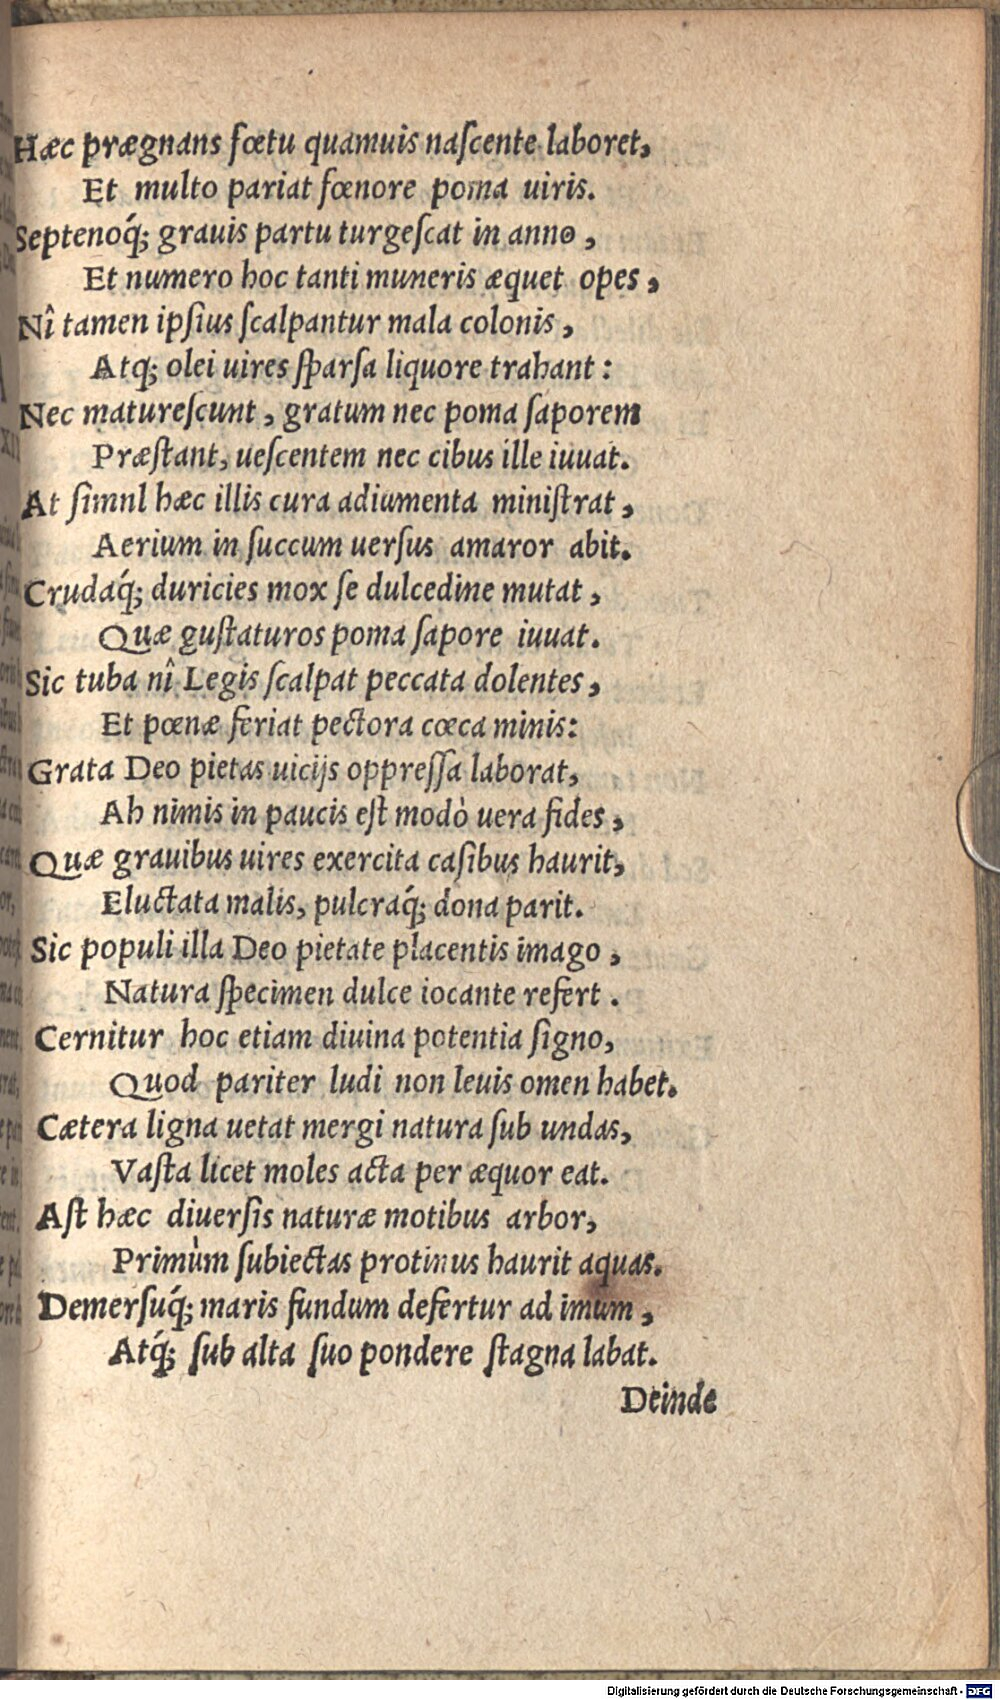 Hæc prægnans fœtu quamuis naſcente laboret,
Et multo pariat fœnore poma uiris.
Septenoq́; grauis partu turgeſcat in anno,
Et numero hoc tanti muneris æquet opes,
Nî tamen ipſius ſcalpantur mala colonis,
Atq; olei uires ſparſa liquore trahant:
Nec matureſcunt, gratum nec poma ſaporem
Præſtant, ueſcentem nec cibus ille iuuat.
At ſimnl hæc illis cura adiumenta miniſtrat,
Aerium in ſuccum uerſus amaror abit.
Crudaq́; duricies mox ſe dulcedine mutat,
Quæ guſtaturos poma ſapore iuuat.
Sic tuba nî Legis ſcalpat peccata dolentes,
Et pœnæ feriat pectora cœca minis:
Grata Deo pietas uicijs oppreſſa laborat,
Ah nimis in paucis eſt modò uera fides,
Quæ grauibus uires exercita caſibus haurit,
Eluctata malis, pulcraq́; dona parit.
Sic populi illa Deo pietate placentis imago,
Natura ſpecimen dulce iocante refert.
Cernitur hoc etiam diuina potentia ſigno,
Quod pariter ludi non leuis omen habet.
Cætera ligna uetat mergi natura ſub undas,
Vaſta licet moles acta per æquor eat.
Aſt hæc diuerſis naturæ motibus arbor,
Primùm ſubiectas protinus haurit aquas.
Demerſuq́; maris fundum defertur ad imum,
Atq́; ſub alta ſuo pondere ſtagna labat.
Deinde
Digitalisierung gefördert durch die Deutsche Forschungsgemeinschaft - DFG